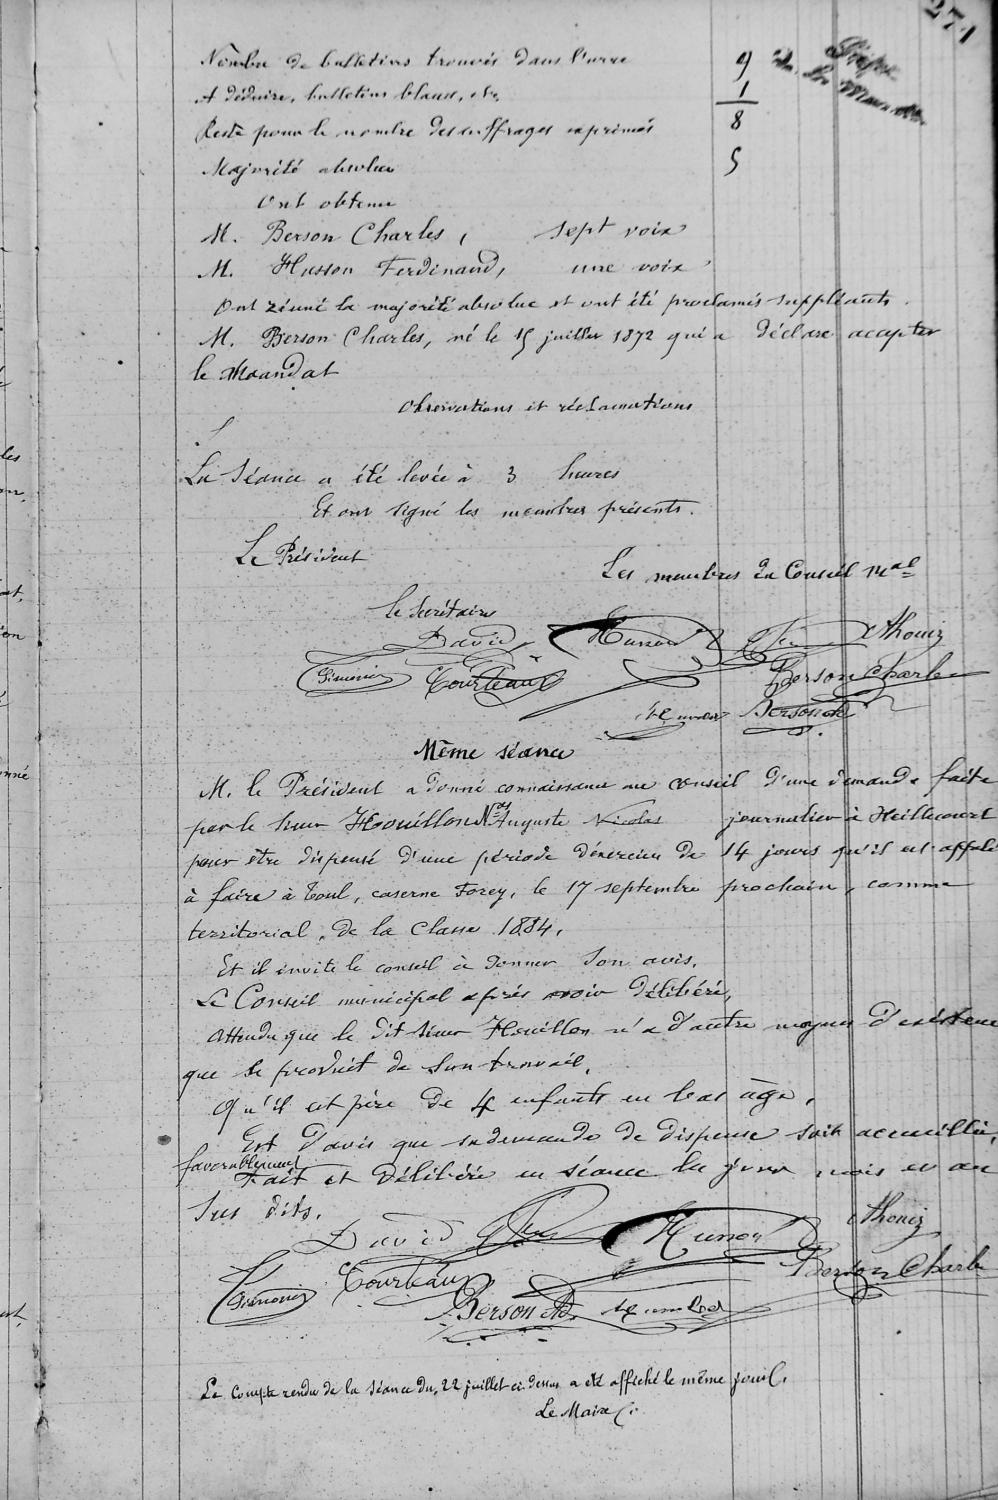 271
Nombre de bulletins trouvés dans l'urne 9
A déduire, bulletins blancs, etc, 1
Reste pour le nombre des suffrages exprimés 8
Majorité absolue 5
Ont obtenu
M. Berson Charles, sept voix
M. Husson Ferdinand, une voix
Ont réuni la majorité absolue et ont été proclamés suppléants.
M. Berson Charles, né le 15 juillet 1872 qui a déclaré accepter
le Maandat
Observations et réclamations
La Séance a été levée à 3 heures
Et ont signé les membres présents.
Le Président
Les membres du Conseil Mal
le Secrétaire
David Husson Thouiz
Simonin Tourteau Berson Charles
Berson
Même séance
M. le Président a donné connaissance au conseil d'une demande faite
par le Sieur Houillon Nas Auguste Nicolas journalier à Heillecourt
pour être dispensé d'une période d'exercice de 14 jours qu'il est appelé
à faire à Toul, caserne Forey, le 17 septembre prochain, comme
territorial, de la classe 1884,
Et il invite le conseil à donner son avis,
Le Conseil municipal après avoir délibéré,
Attendu que le dit Sieur Houillon n'a d'autre moyens d'existence
que le produit de son travail,
Qu'il est père de 4 enfants en bas âge,
Est d'avis que sa demande de dispense soit accueillie,
favorablement
Fait et délibéré en séance les jour, mois et an
sus dits.
David Husson Thouiz
Simonin Tourteau Berson Charles
Berson
Le Compte rendu de la séance du 22 juillet ci-dessus a été affiché le même jour.
Le Maire